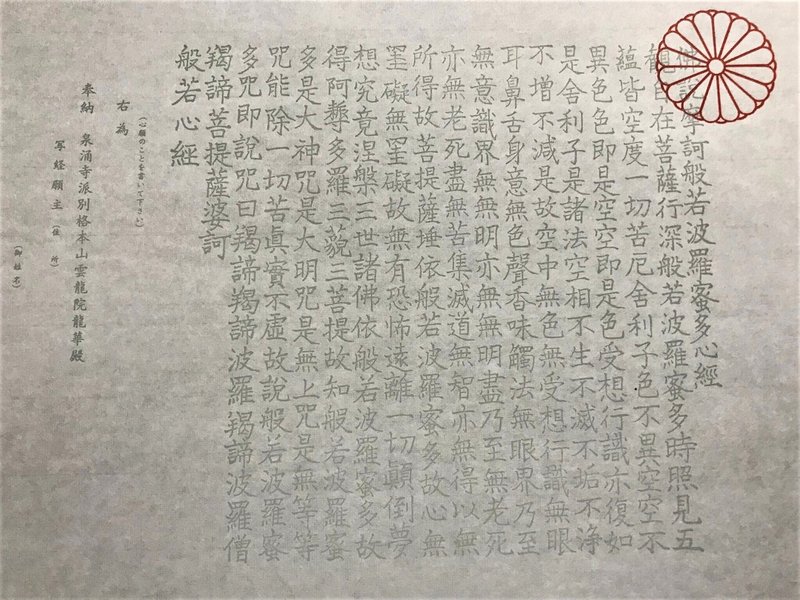 佛說摩訶般若波羅蜜多心經
觀自在菩薩行深般若波羅蜜多時照見五
蘊皆空度一切苦厄舍利子色不異空空不
異色色即是空空即是色受想行識亦復如
是舍利子是諸法空相不生不滅不垢不浄
不增不減是故空中無色無受想行識無眼
耳鼻舌身意無色聲香味觸法無眼界乃至
無意識界無無明亦無無明盡乃至無老死
亦無老死盡無苦集滅道無智亦無得以無
所得故菩提薩埵依般若波羅蜜多故心無
罣礙無罣礙故無有恐怖遠離一切顛倒夢
想究竟涅槃三世諸佛依般若波羅蜜多故
得阿耨多羅三藐三菩提故知般若波羅蜜
多是大神咒是大明咒是無上咒是無等等
咒能除一切苦眞實不虛故說般若波羅蜜
多咒即說咒曰羯諦羯諦波羅羯諦波羅僧
羯諦菩提薩婆訶
般若心經
右為
(心願のことを書いて下さい)
奉納 泉涌寺派別格本山雲龍院龍華殿
写経願主 (住所)
(御姓名)